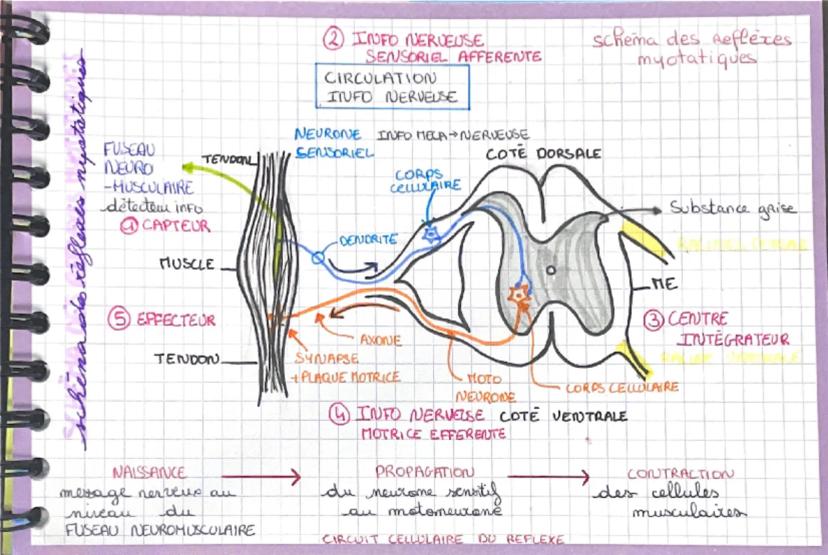 ② INFO NERVEUSE
SENSORIEL AFFERENTE
schéma des Reflèxes
myotatiques
CIRCULATION
INFO NERVEUSE
schéma des réflèxes myotatiques
NEURONE INFO MECA→NERVEUSE
SENSORIEL
FUSEAU
NEURO
-MUSCULAIRE
détecteur info
① CAPTEUR
TENDON
COTÉ DORSALE
CORPS
CELLULAIRE
Substance grise
DENDRITE
MUSCLE
ME
⑤ EFFECTEUR
③ CENTRE
INTÉGRATEUR
AXONE
TENDON
SYNAPSE
+ PLAQUE MOTRICE
MOTO
NEURONE
CORPS CELLULAIRE
④ INFO NERVEUSE COTÉ VENTRALE
MOTRICE EFFERENTE
NAISSANCE → PROPAGATION → CONTRACTION
message nerveux au du neurone sensitif des cellules
niveau du au motoneurone musculaires
FUSEAU NEUROMUSCULAIRE
CIRCUIT CELLULAIRE DU REFLEXE